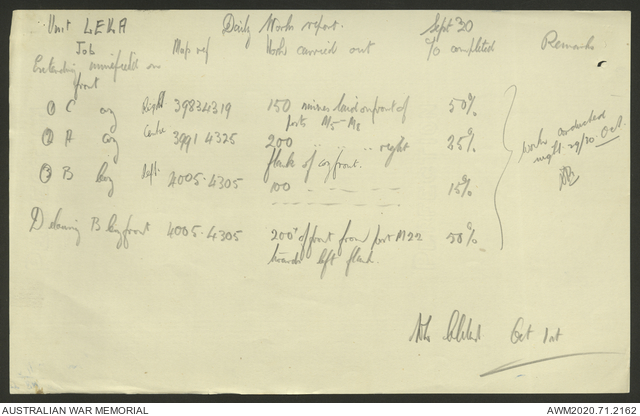 Unit LEKA Daily Works report. Sept 30
Job Map ref Works carried out % completed Remarks
Extending minefield on
front
① C coy Right 39834319 150 mines laid on front of 50%
posts
② A coy Centre 3991 4325 200 " " " right 25%
flank of coy front.
③ B Coy Left 4005.4305 100 15%
Works conducted
night 29/30
B Coy front 4005.4305 200 of front from post M22 50%
towards left flank.
Oct 1st
AUSTRALIAN WAR MEMORIAL AWM2020.71.2162